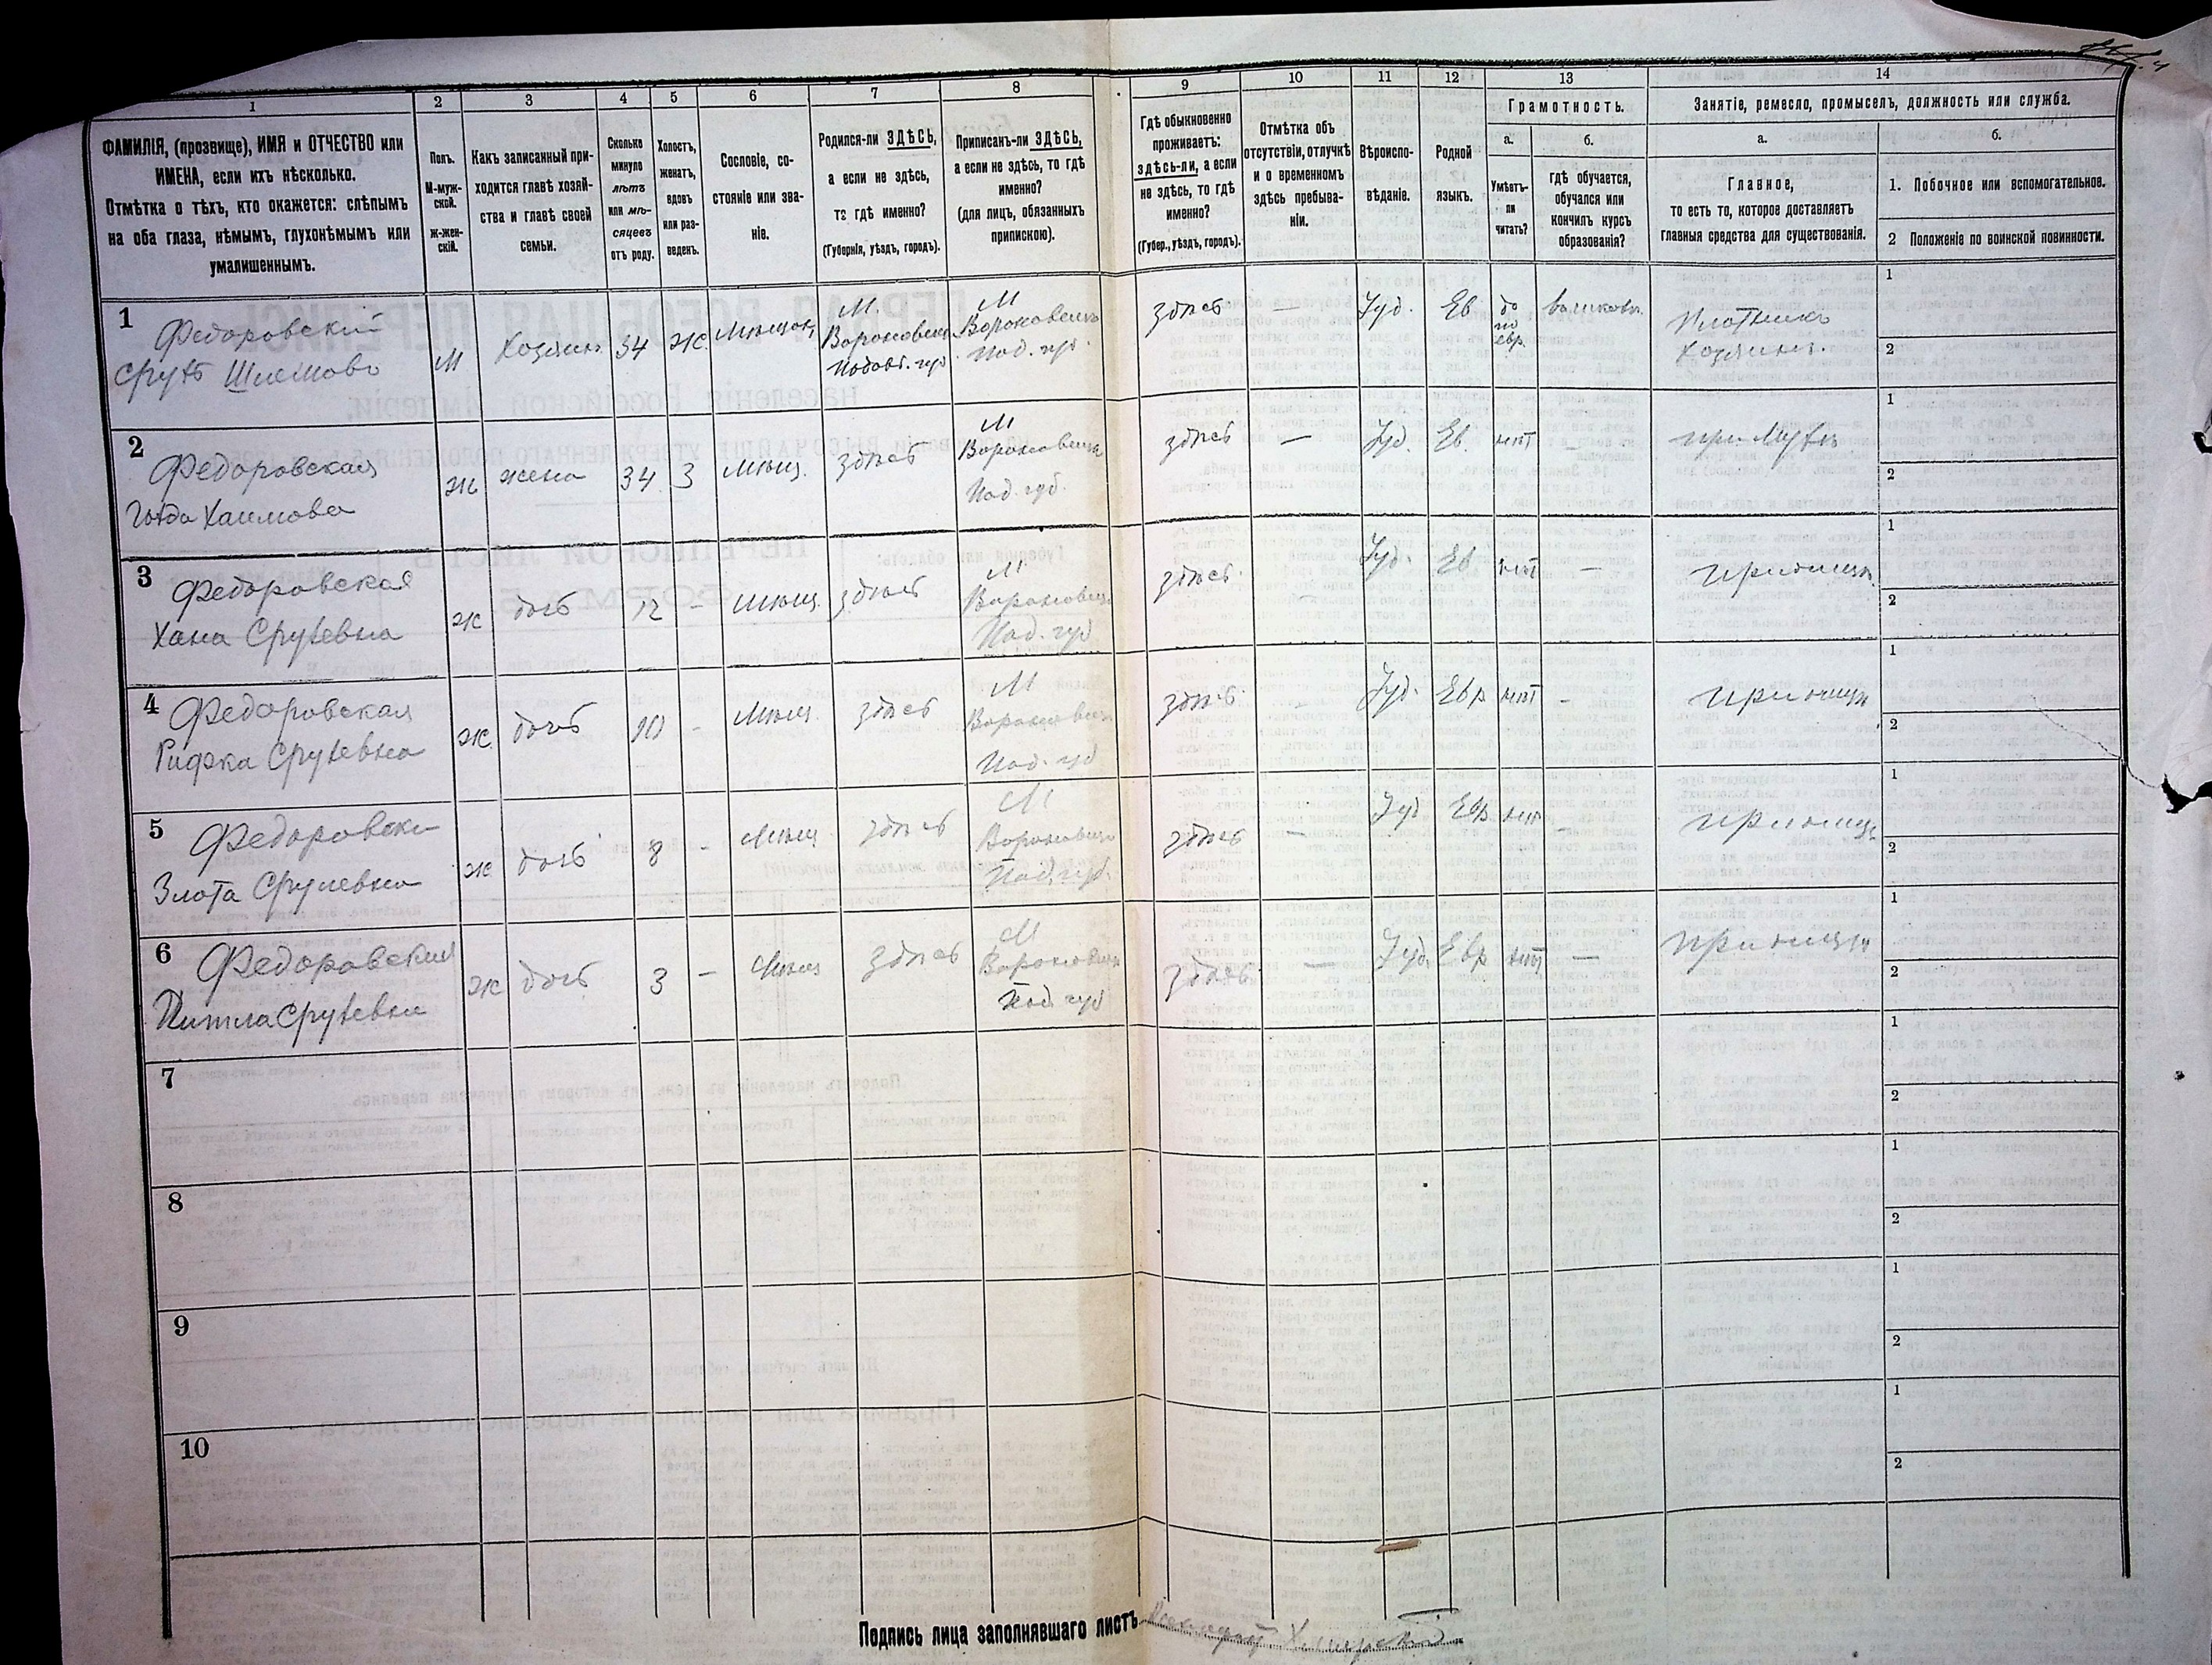 1
2
3
4
5
6
7
8
9
10
11
12
13
14
ФАМИЛІЯ, (прозвище), ИМЯ и ОТЧЕСТВО или
ИМЕНА, если ихъ нѣсколько.
Отмѣтка о тѣхъ, кто окажется: слѣпымъ
на оба глаза, нѣмымъ, глухонѣмымъ или
умалишеннымъ.
Полъ.
М-муж-
ской.
ж-жен-
скій.
Какъ записанный при-
ходится главѣ хозяй-
ства и главѣ своей
семьи.
Сколько
минуло
лѣтъ
или мѣ-
сяцевъ
отъ роду.
Холостъ,
женатъ,
вдовъ
или раз-
веденъ.
Сословіе, со-
стояніе или зва-
ніе.
Родился-ли ЗДѢСЬ,
а если не здѣсь,
то гдѣ именно?
(Губернія, уѣздъ, городъ).
Приписанъ-ли ЗДѢСЬ,
а если не здѣсь, то гдѣ
именно?
(для лицъ, обязанныхъ
припискою).
Гдѣ обыкновенно
проживаетъ:
здѣсь-ли, а если
не здѣсь, то гдѣ
именно?
(Губер., уѣздъ, городъ).
Отмѣтка объ
отсутствіи, отлучкѣ
и о временномъ
здѣсь пребыва-
ніи.
Вѣроиспо-
вѣданіе.
Родной
языкъ.
Грамотность.
а.
Умѣетъ-
ли
читать?
б.
гдѣ обучается,
обучался или
кончилъ курсъ
образованія?
Занятіе, ремесло, промыселъ, должность или служба.
а.
Главное,
то есть то, которое доставляетъ
главныя средства для существованія.
б.
1. Побочное или вспомогательное.
2 Положеніе по воинской повинности.
1
Федоровскій
Сруль Шлемовъ
М
Хозяинъ
34
Ж.
М.
Вороновица
Подол. губ
М
Вороновица
Под. губ.
здѣсь
—
Іуд.
Ев
да
по
евр.
Плотникъ
хозяинъ.
1
2
2
Федоровская
Хаимова
ж
жена
34
З
Мѣщ.
здѣсь
М
Вороновица
Под. губ.
здѣсь
—
Іуд.
Ев.
нѣт
-
при мужѣ
1
2
3
Федоровская
Хана Срулевна
ж
дочь
12
-
Мѣщ.
здѣсь
М
Вороновица
Под. губ
здѣсь
-
Іуд.
Ев
нѣт
-
при отцѣ
1
2
4
Федоровская
Рифка Срулевна
ж.
дочь
10
-
Мѣщ.
здѣсь
М
Вороновица
Под. губ
здѣсь
-
Іуд.
Евр
нѣт
-
при отцѣ
1
2
5
Федоровска
Злота Срулевна
ж.
дочь
8
-
Мѣщ
здѣсь
М
Вороновица
Под. губ.
здѣсь
—
Іуд
Евр
нѣт
-
при отцѣ
1
2
6
Федоровская
Срулевна
ж
дочь
3
—
Мѣщ
здѣсь
М
Вороновица
Под. губ
здѣсь
—
Іуд.
Евр
нѣт
—
при отцѣ
1
2
7
1
2
8
1
2
9
1
2
10
1
2
Подпись лица заполнявшаго листъ